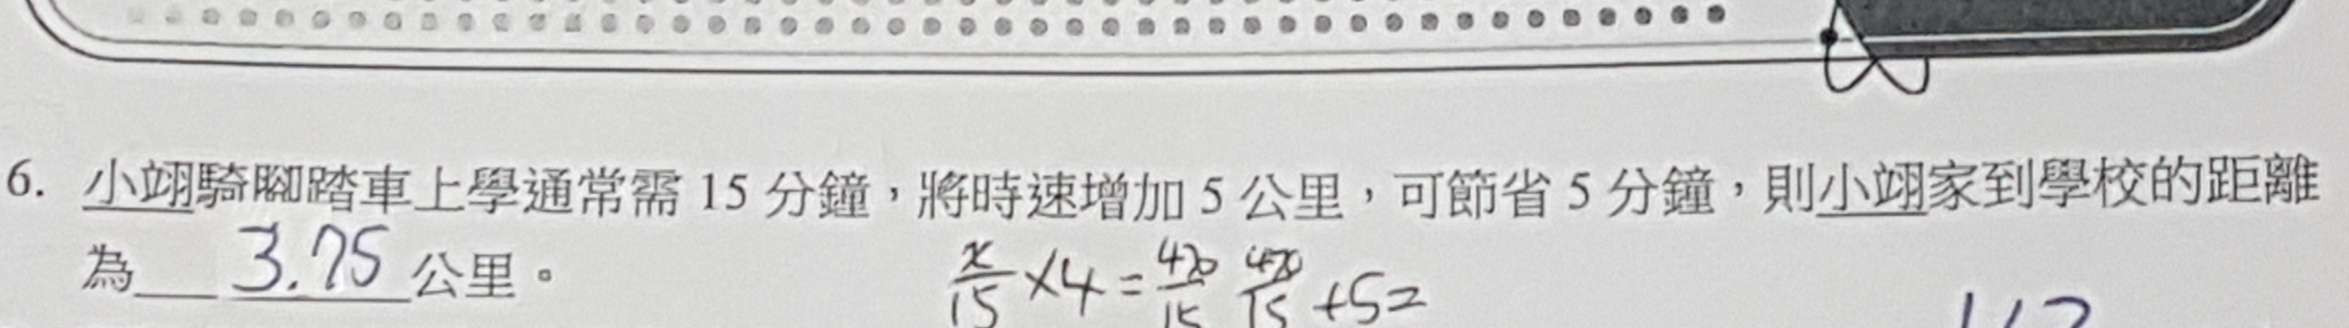 6. 小翊騎腳踏車上學通常需 15 分鐘，將時速增加 5 公里，可節省 5 分鐘，則小翊家到學校的距離
為 3.75 公里。
x/15 ×4 =
+5=